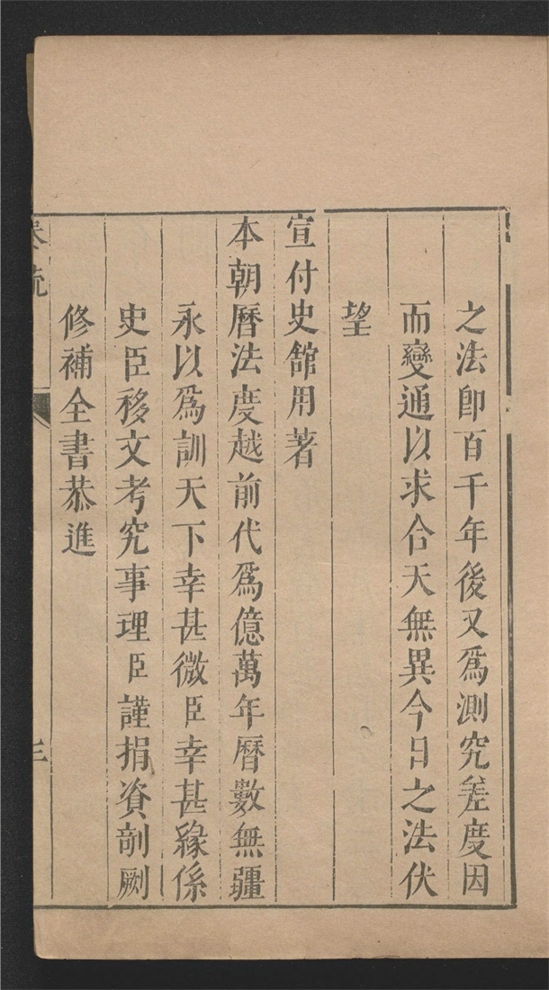 之法即百千年後又爲測究差度因
而變通以求合天無異今日之法伏
望
宣付史館用著
本朝曆法度越前代爲億萬年曆數無疆
永以爲訓天下幸甚微臣幸甚緣係
史臣移文考究事理臣謹捐資剞劂
修補全書恭進
奏疏
三